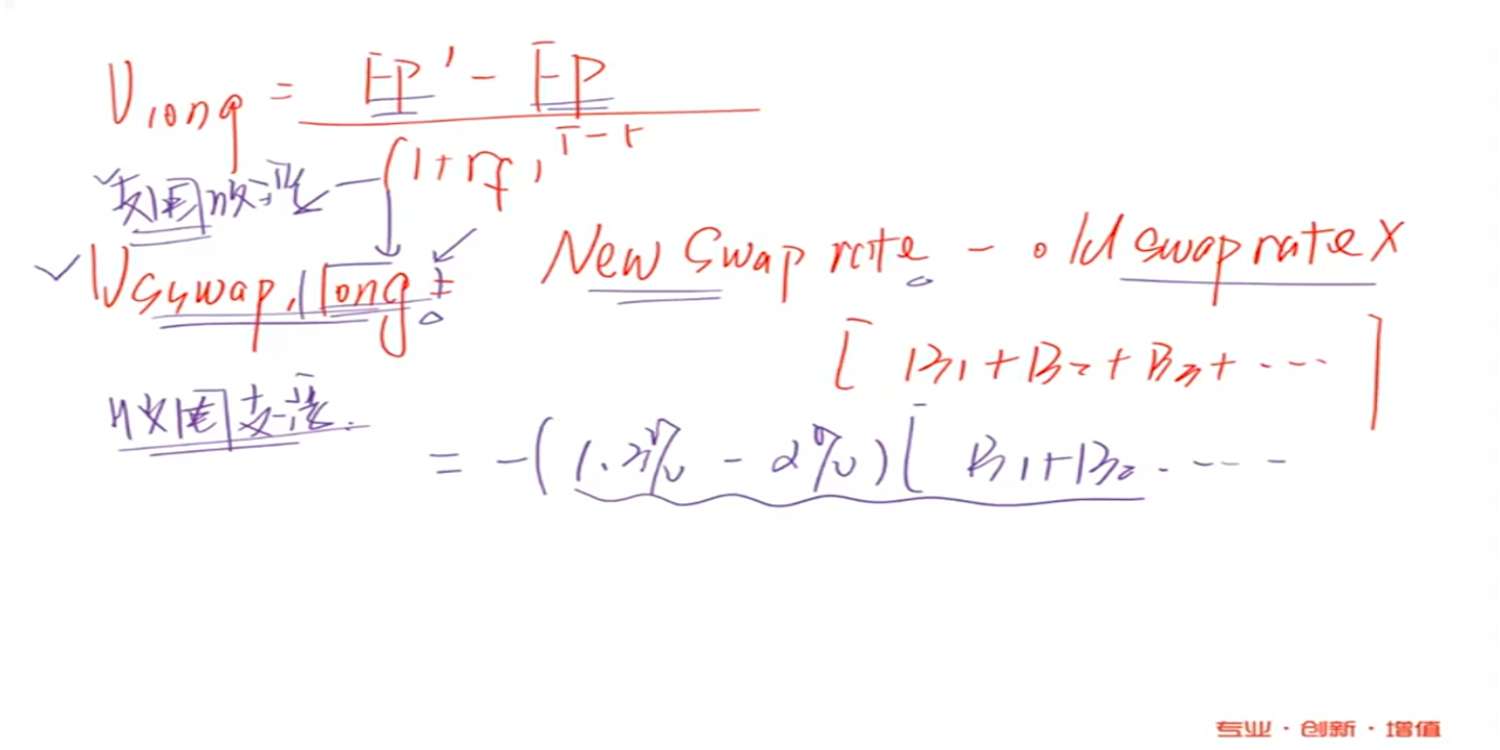 V long = FP' - FP
(1+rf)^T-t
支固收浮
V swap, long = New swap rate - old swap rate X
[ B1 + B2 + B3 + ... ]
收固支浮.
= -(1.2% - 2%)[ B1+B2 ... -
专业·创新·增值